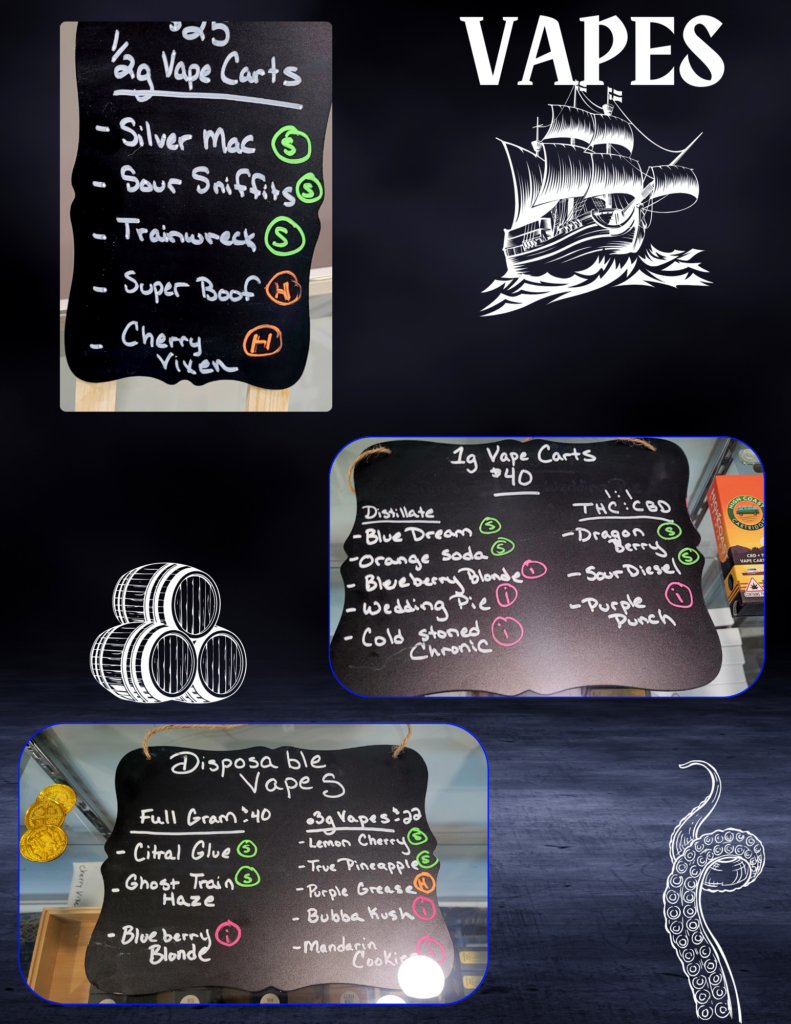 VAPES
$25
1/2g Vape Carts
- Silver Mac S
- Sour Sniffits S
- Trainwreck S
- Super Boof H
- Cherry H
Vixen
1g Vape Carts
$40
Distillate
- Blue Dream S
- Orange Soda S
- Blueberry Blonde i
- Wedding Pie i
- Cold stoned i
Chronic
1:1
THC:CBD
- Dragon S
Berry
- Sour Diesel S
- Purple i
Punch
HIGH COAST
Disposable
Vapes
Full Gram $40
- Citral Glue S
- Ghost Train S
Haze
- Blueberry i
Blonde
.3g Vapes $22
- Lemon Cherry S
- True Pineapple S
- Purple Grease H
- Bubba Kush i
- Mandarin i
Cookies